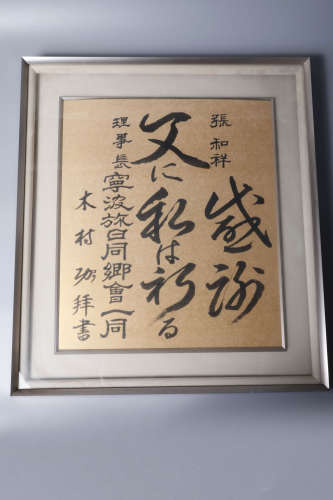 張和祥
感謝
父に私は祈る
理事長
寧波旅日同鄉會一同
木村弘拜書